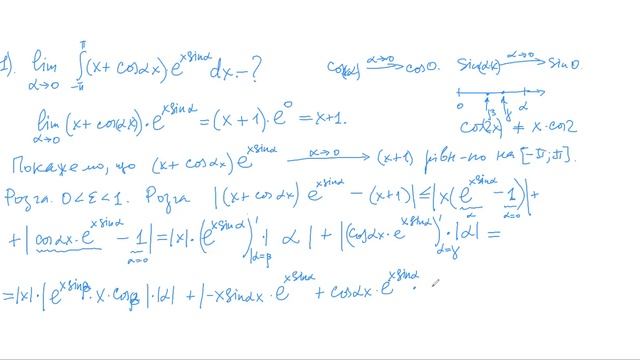 1). lim_{α→0} ∫_{-π}^{π} (x + cosαx) e^{x sinα} dx - ?
cos(αx) →^{α→0} cos0. sin(αx) →^{α→0} sin0
0 β γ α
lim_{α→0} (x + cosαx)·e^{x sinα} = (x+1)·e^0 = x+1.
cos(2x) ≠ x·cos2
Покажемо, що (x + cosαx) e^{x sinα} →^{α→0} (x+1) рівн-но на [-π;π].
Розгл. 0<ε<1. Розгл |(x + cosαx) e^{x sinα} - (x+1)| ≤ |x(e^{x sinα} - 1)| +
α α=0
+ |cosαx·e^{x sinα} - 1| = |x|·(e^{x sinα})'|_{α=β}·|α| + |(cosαx·e^{x sinα})'_{α=γ}·|α| =
α=0
= |x|·|e^{x sinβ}·x·cosβ|·|α| + |-x sinαx·e^{x sinα} + cosαx·e^{x sinα}·